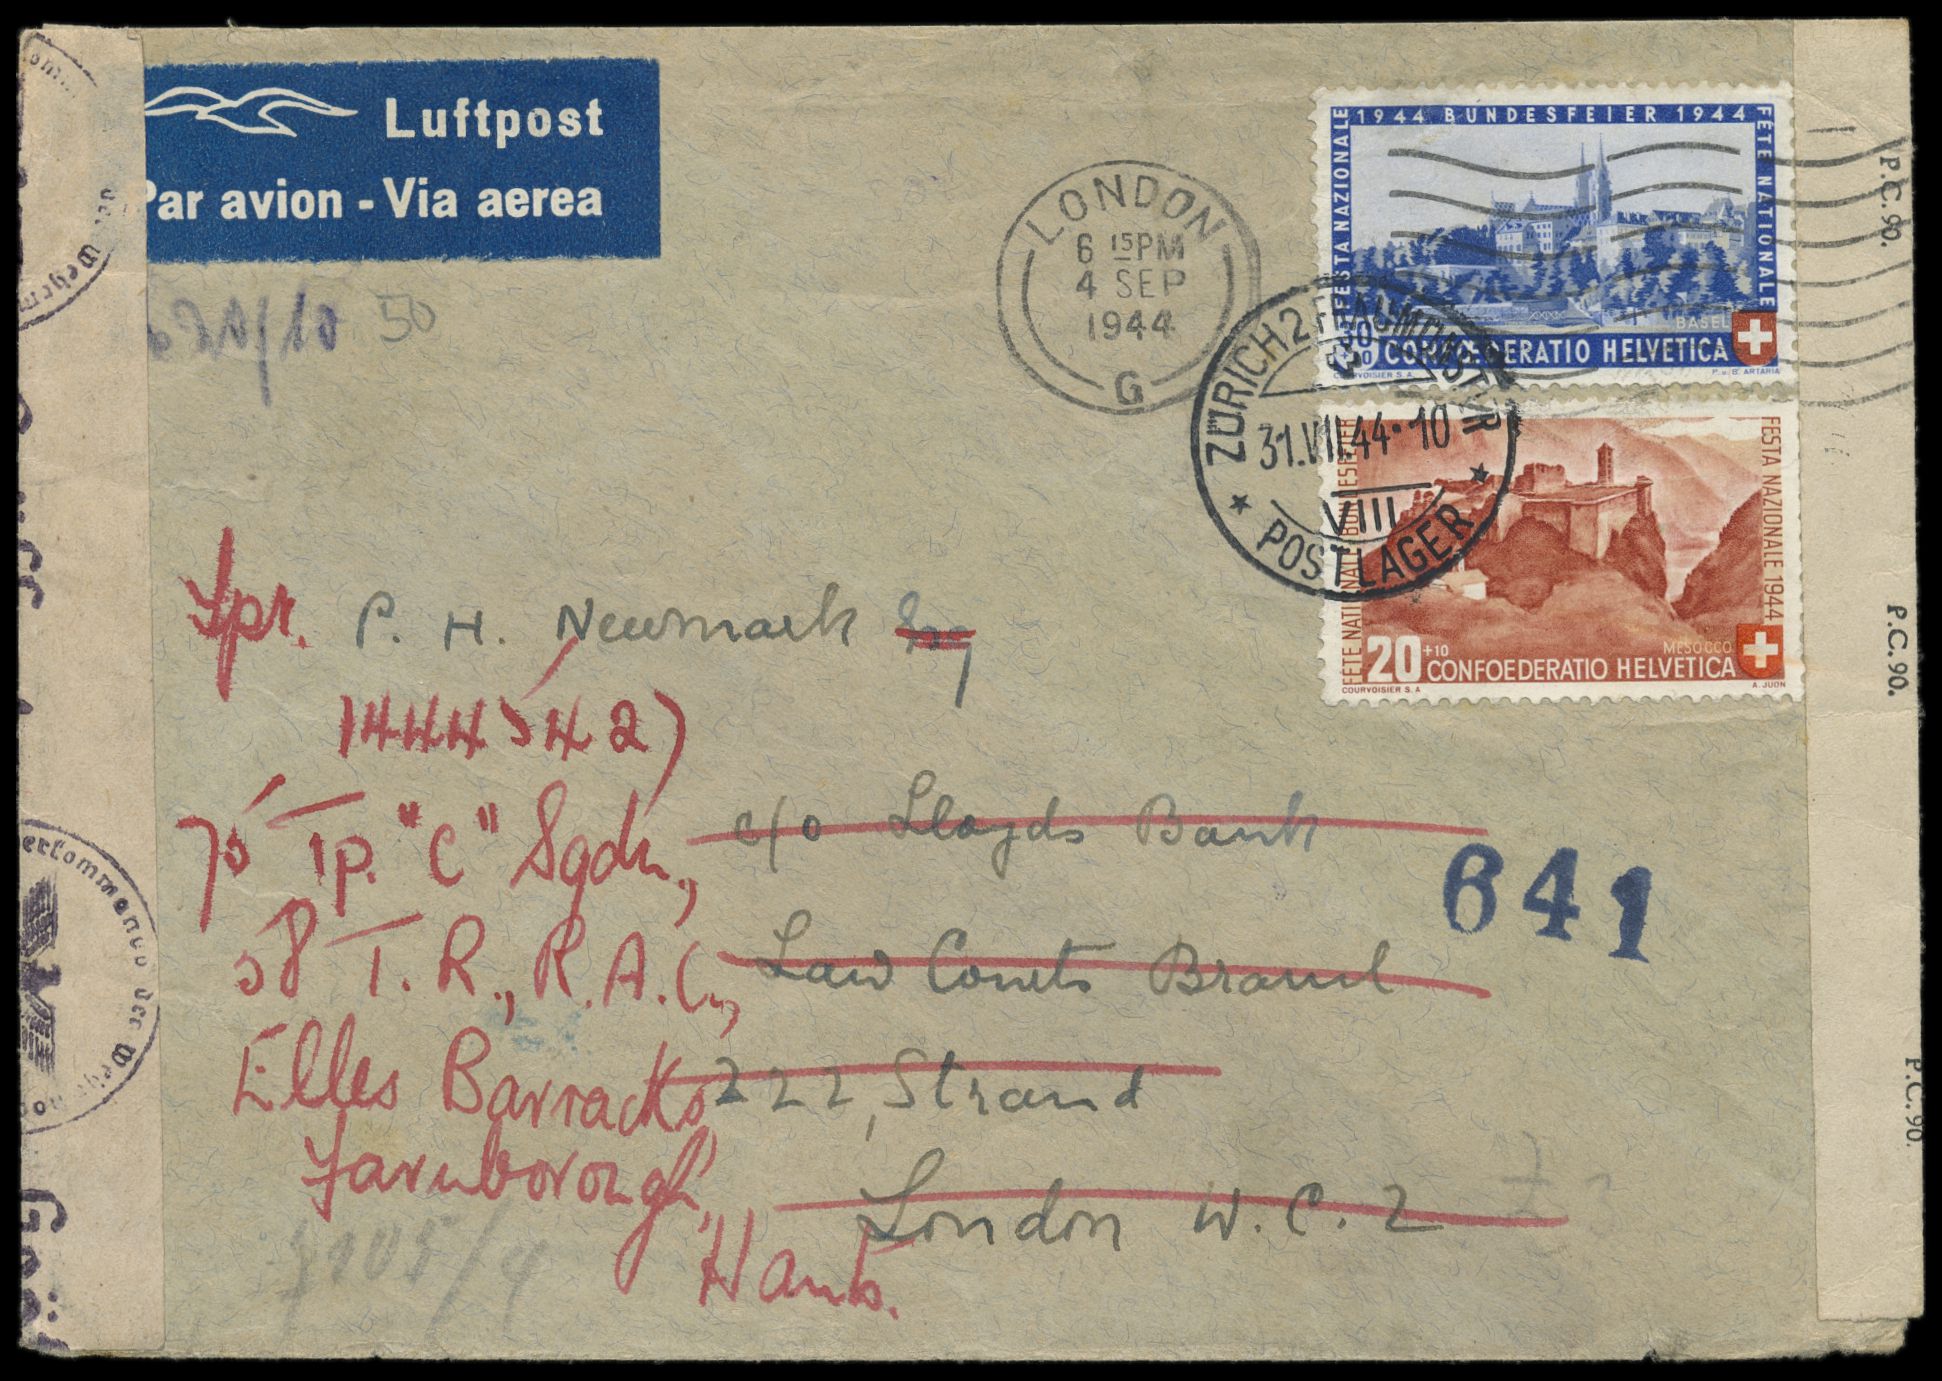 Luftpost
Par avion - Via aerea
50
LONDON
6 15 PM
4 SEP
1944
G
1944 BUNDESFEIER 1944
FESTA NAZIONALE
FETE NATIONALE
BASEL
30
CONFOEDERATIO HELVETICA
COURVOISIER S.A.
P. u. B. ARTARIA
ZÜRICH 2 FRAUMÜNSTER
31.VII.44-10
VIII
POSTLAGER
FETE NATIONALE BUNDESFEIER
FESTA NAZIONALE 1944
MESOCCO
20+10
CONFOEDERATIO HELVETICA
COURVOISIER S.A
A. JUON
P.C. 90.
P.C. 90.
P.C. 90.
Oberkommando der Wehrm
Spr. P. H. Newmark Esq
14445427
75 Tp. "C" Sqdn., c/o Lloyds Bank
58 T. R., R.A.C., Law Courts Branch
Elles Barracks 222, Strand
Farnborough, London W.C.2
Hants.
641